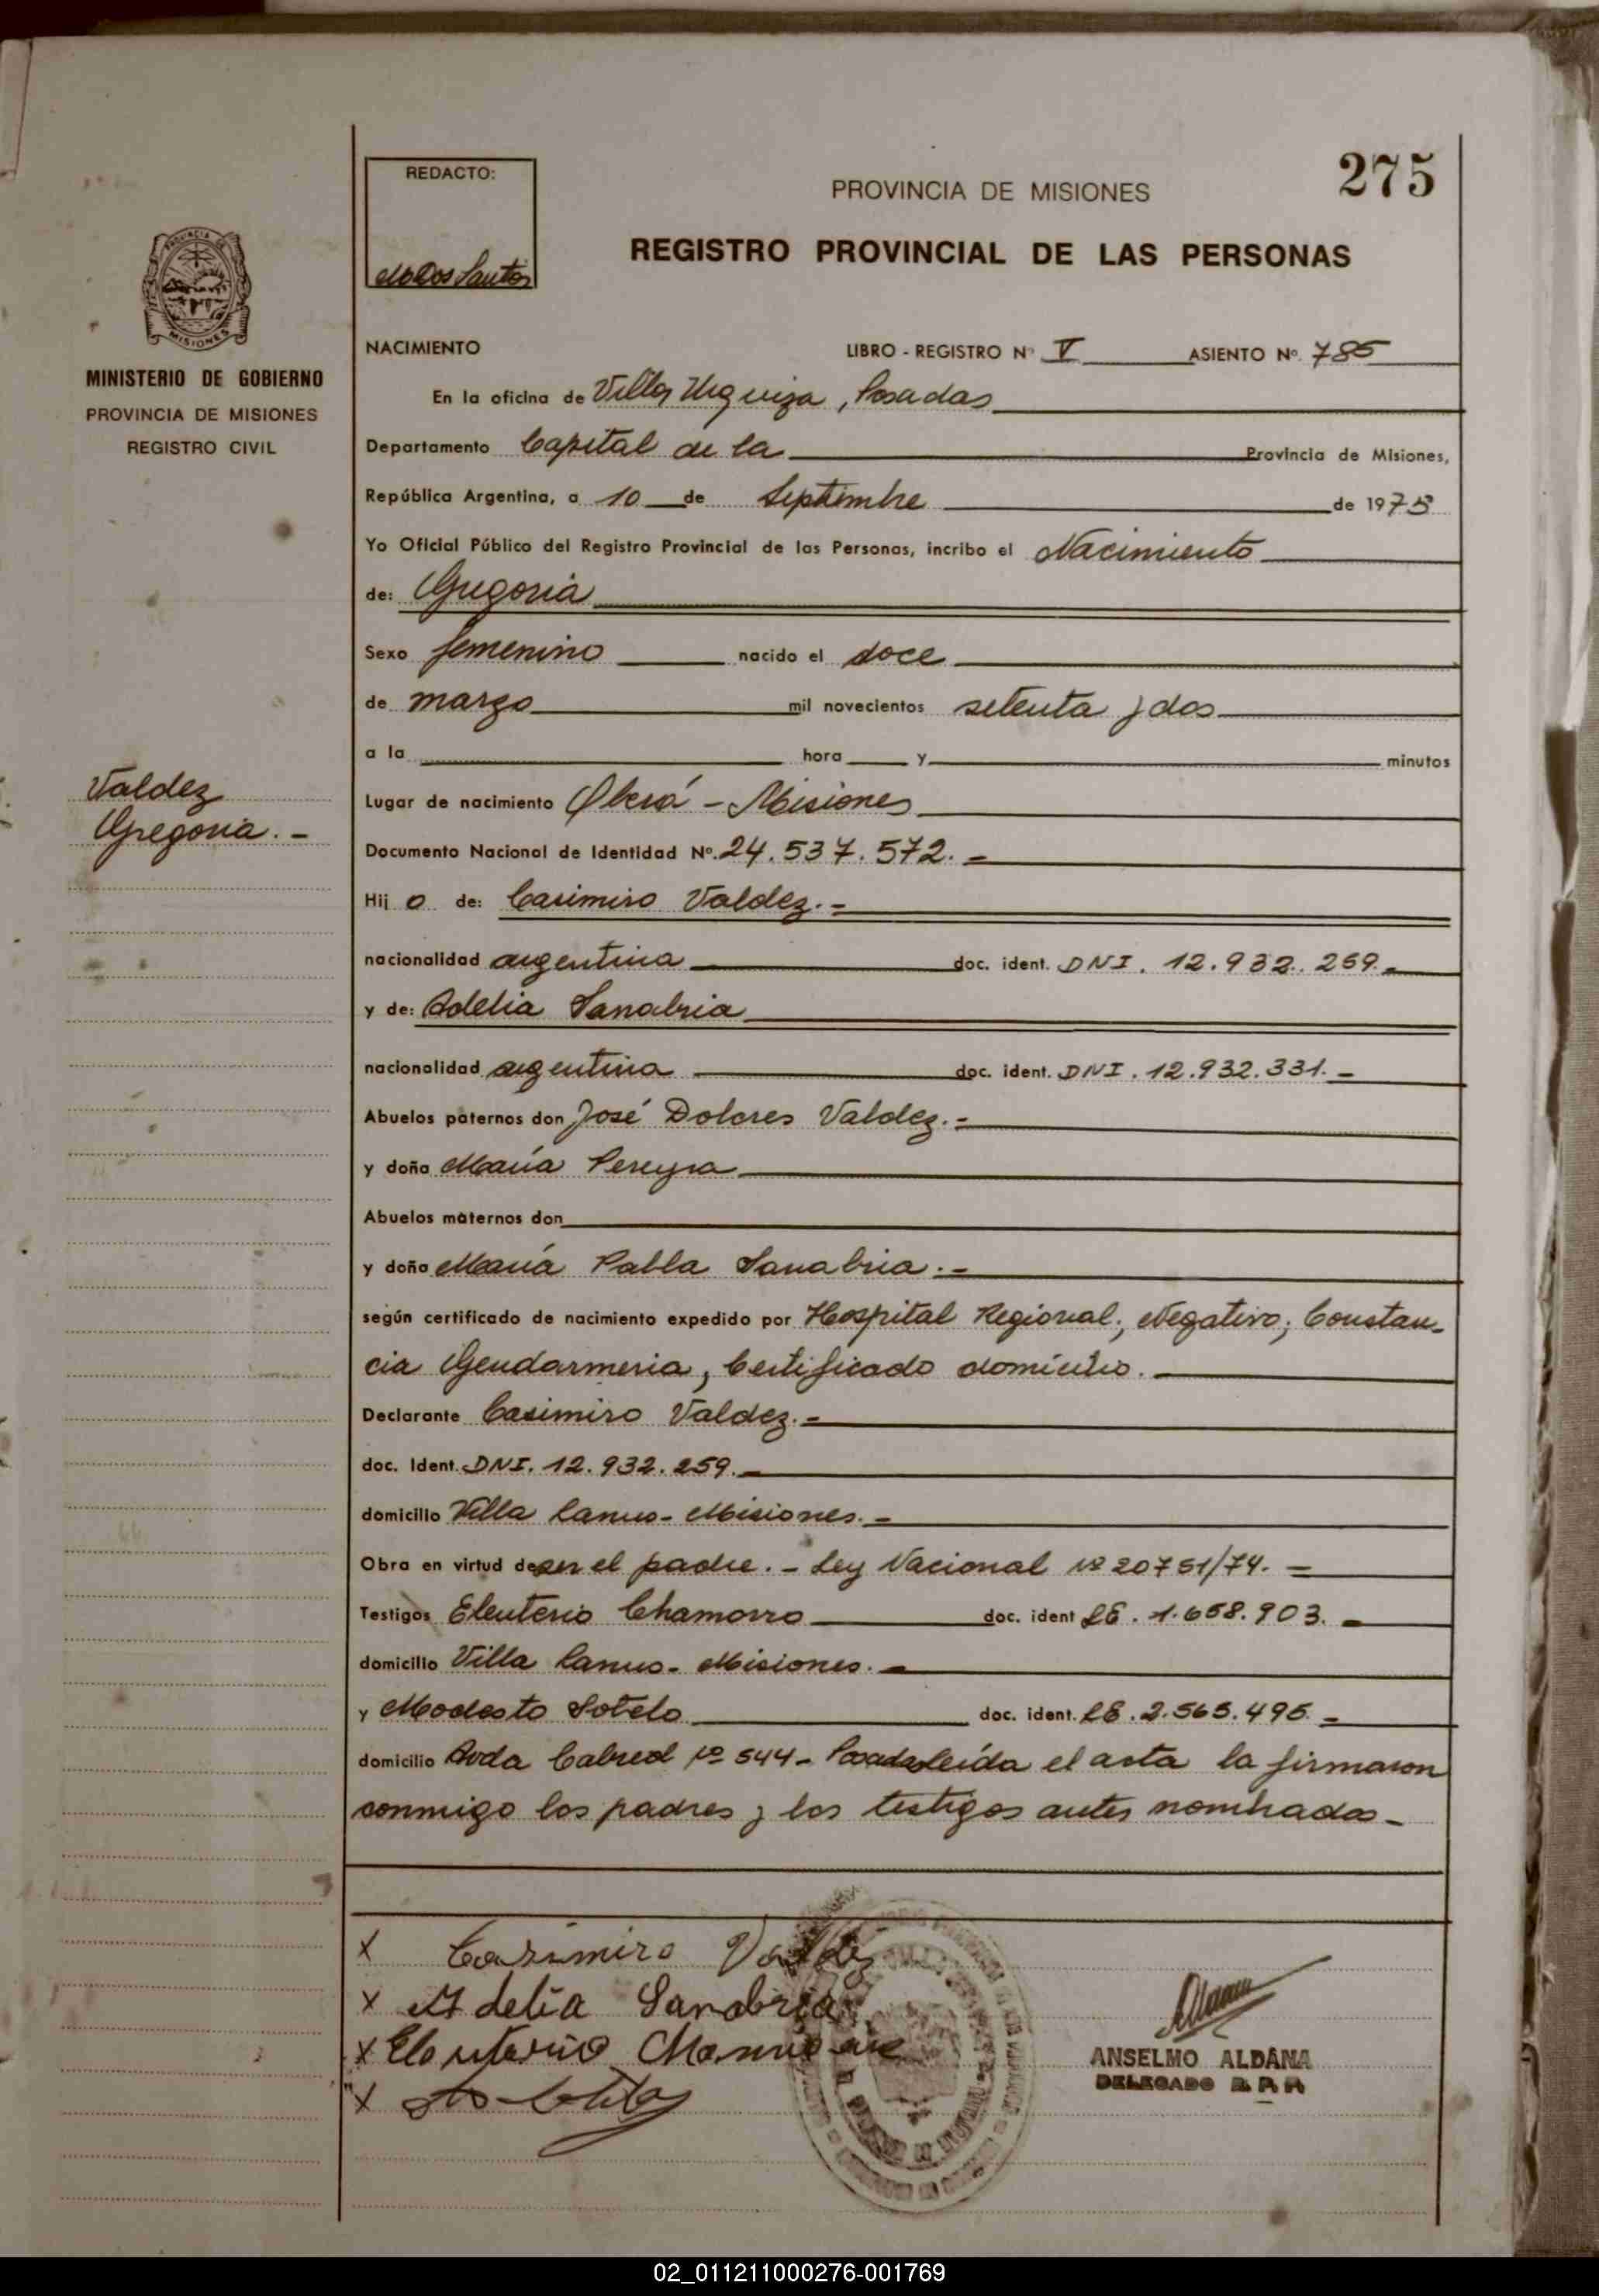 275
REDACTO:
PROVINCIA DE MISIONES
REGISTRO PROVINCIAL DE LAS PERSONAS
Dos Santos
PROVINCIA DE
MISIONES
MINISTERIO DE GOBIERNO
PROVINCIA DE MISIONES
REGISTRO CIVIL
NACIMIENTO LIBRO - REGISTRO Nº V ASIENTO Nº. 785
En la oficina de Villa Urquiza, Posadas
Departamento Capital de la Provincia de Misiones,
República Argentina, a 10 de Septiembre de 1975
Yo Oficial Público del Registro Provincial de las Personas, incribo el Nacimiento
de: Gregoria
Sexo femenino nacido el doce
de marzo mil novecientos setenta y dos
a la hora y minutos
Valdez
Gregoria. -
Lugar de nacimiento Oberá - Misiones
Documento Nacional de Identidad Nº. 24.537.572. -
Hij o de: Casimiro Valdez. -
nacionalidad argentina doc. ident. DNI. 12.932.259. -
y de: Adelia Sanabria
nacionalidad argentina doc. ident. DNI. 12.932.331. -
Abuelos paternos don José Dolores Valdez. -
y doña María Pereyra
Abuelos maternos don
y doña María Pabla Sanabria. -
según certificado de nacimiento expedido por Hospital Regional; Negativo; Constan-
cia Gendarmeria, Certificado domicilio.
Declarante Casimiro Valdez. -
doc. Ident. DNI. 12.932.259. -
domicilio Villa Lanus - Misiones. -
Obra en virtud de ser el padre. - Ley Nacional Nº 20751/74. -
Testigos Eleuterio Chamorro doc. ident LE. 1.658.903. -
domicilio Villa Lanus - Misiones. -
y Modesto Sotelo doc. ident. LE. 2.565.495. -
domicilio Avda Cabred Nº 544 - Posadas leída el acta la firmaron
conmigo los padres y los testigos antes nombrados -
x Casimiro Valdez
x Adelia Sanabria
x Eleuterio
x
ANSELMO ALDANA
DELEGADO R. P. P.
02_011211000276-001769